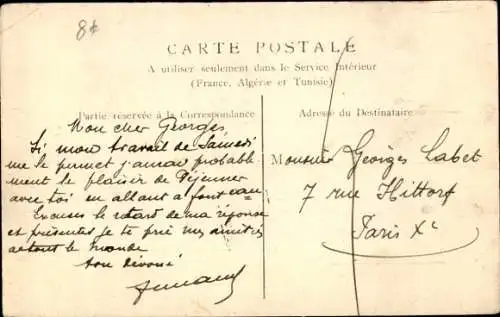 8f
CARTE POSTALE
A utiliser seulement dans le Service Intérieur
(France, Algérie et Tunisie)
Partie réservée à la Correspondance
Adresse du Destinataire
Mon cher Georges,
Si mon travail de Samedi
me le permet j'aurai probable
ment le plaisir de Déjeuner
avec toi en allant a font eau
Excuses le retard de ma réponse
et présentes je te prie mes amitiés
a tout le monde
ton dévoué
Monsieur Georges Labet
7 rue Hittorf
Paris Xe